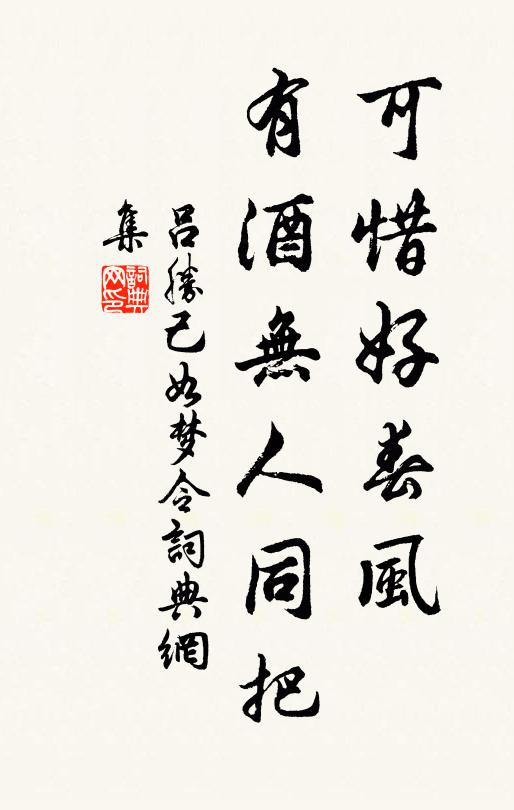 可惜好春風
有酒無人同把
呂勝己如梦令詞典網
集
詞典網印